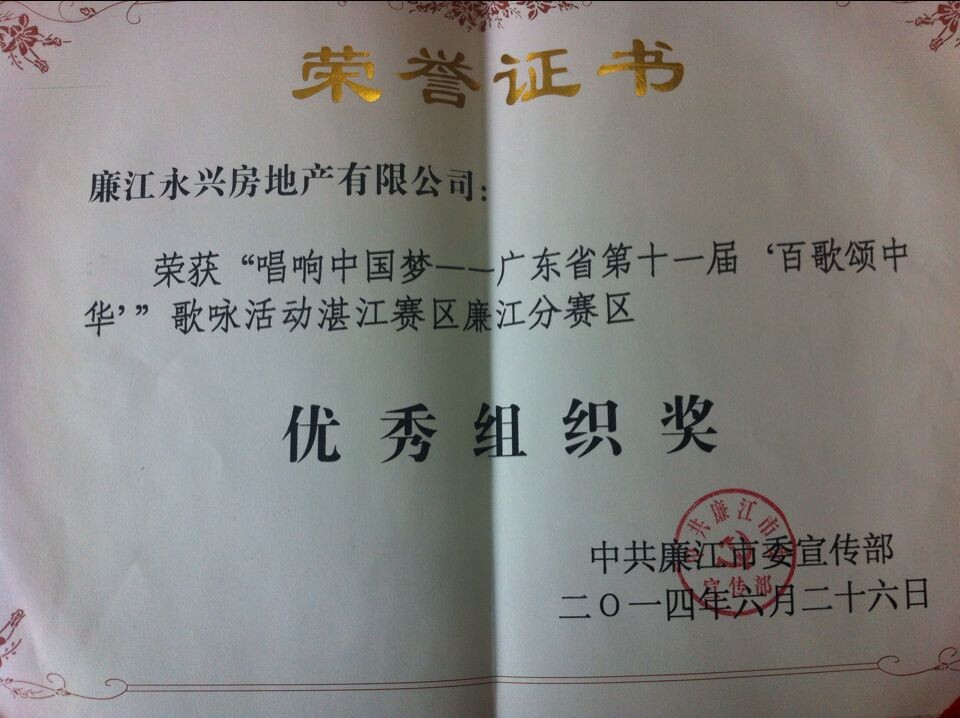 荣誉证书
廉江永兴房地产有限公司：
荣获“唱响中国梦——广东省第十一届‘百歌颂中
华’”歌咏活动湛江赛区廉江分赛区
优秀组织奖
中共廉江市委宣传部
二〇一四年六月二十六日
中共廉江市委
宣传部